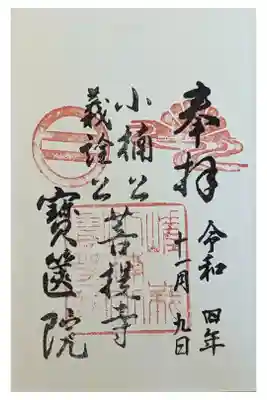 奉拝
令和四年
十一月九日
小楠公
義詮公
菩提寺
寶筐院